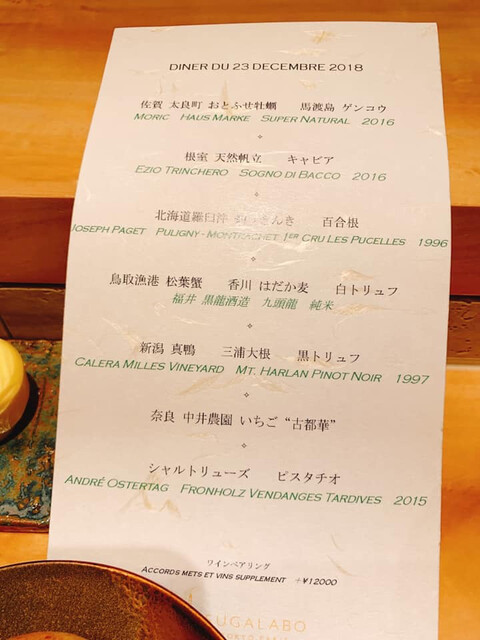 DINER DU 23 DECEMBRE 2018
佐賀 太良町 おとふせ牡蠣 馬渡島 ゲンコウ
MORIC HAUS MARKE SUPER NATURAL 2016
根室 天然帆立 キャビア
EZIO TRINCHERO SOGNO DI BACCO 2016
北海道羅臼沖 きんき 百合根
JOSEPH PAGET PULIGNY-MONTRACHET 1ER CRU LES PUCELLES 1996
鳥取漁港 松葉蟹 香川 はだか麦 白トリュフ
福井 黒龍酒造 九頭龍 純米
新潟 真鴨 三浦大根 黒トリュフ
CALERA MILLES VINEYARD MT. HARLAN PINOT NOIR 1997
奈良 中井農園 いちご “古都華”
シャルトリューズ ピスタチオ
ANDRÉ OSTERTAG FRONHOLZ VENDANGES TARDIVES 2015
ワインペアリング
ACCORDS METS ET VINS SUPPLEMENT +¥12000
SUGALABO